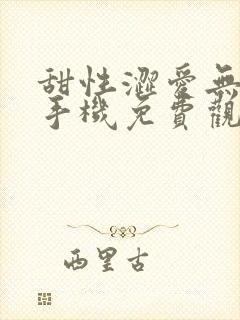 甜性澀愛無
手機免費觀
西里古